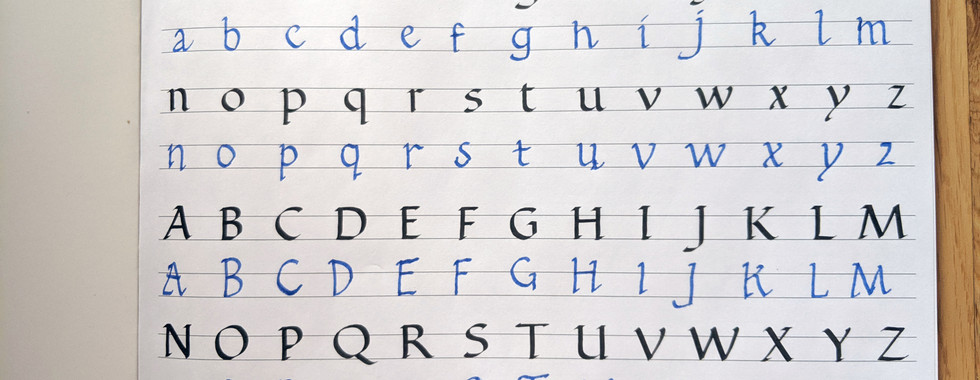 a b c d e f g h i j k l m
n o p q r s t u v w x y z
n o p q r s t u v w x y z
A B C D E F G H I J K L M
A B C D E F G H I J K L M
N O P Q R S T U V W X Y Z